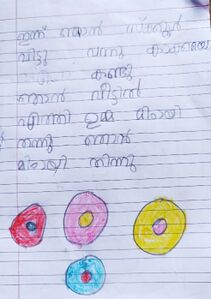 ഇന്ന് ഞാൻ സ്കൂൾ
വിട്ടു വന്നു കാക്കയെ
കണ്ടു
ഞാൻ വീട്ടിൽ
എത്തി ഉമ്മ മിഠായി
തന്നു ഞാൻ
മിഠായി തിന്നു